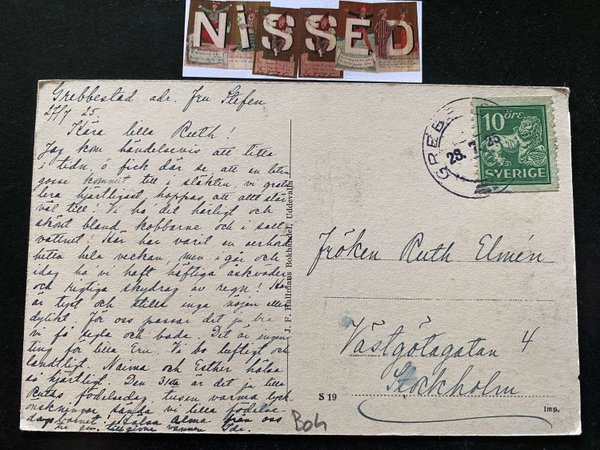 NISSED
Grebbestad adr. Fru Stefen
27/7 25.
Kära lilla Ruth!
Jag kom händelsevis att titta
i tidn. o fick där se, att en liten
gosse kommit till i släkten, vi gratu
lera hjärtligast hoppas att allt står
väl till! Vi ha det härligt och
skönt bland kobbarne och i salt
vattnet! Här har varit en oerhörd
hetta hela veckan, men i går och
idag ha vi haft häftiga åskväder
och riktiga skydrag av regn!
är tyst och stilla inga nöjen eller
dylikt. För oss passar det ju bra
vi få segla och bada. Det är ingen
ting för lilla Eru. Vi bo luftigt och
landtligt. Naima och Esther hälsa
så hjärtligt. Den 31sta är det ju lilla
Rutas födelsedag, tusen varma lyck
önskningar, sända vi lilla födelse
dagsbarnet. Hälsa Alma från oss
tillgivna vännen Ide.
J. F. Hallmans Bokhandel, Uddevalla
GREBB
28. 7. 25
10 ÖRE
SVERIGE
Fröken Ruth Elmén
Västgötagatan 4
Stockholm
S 19
Imp.
Boh